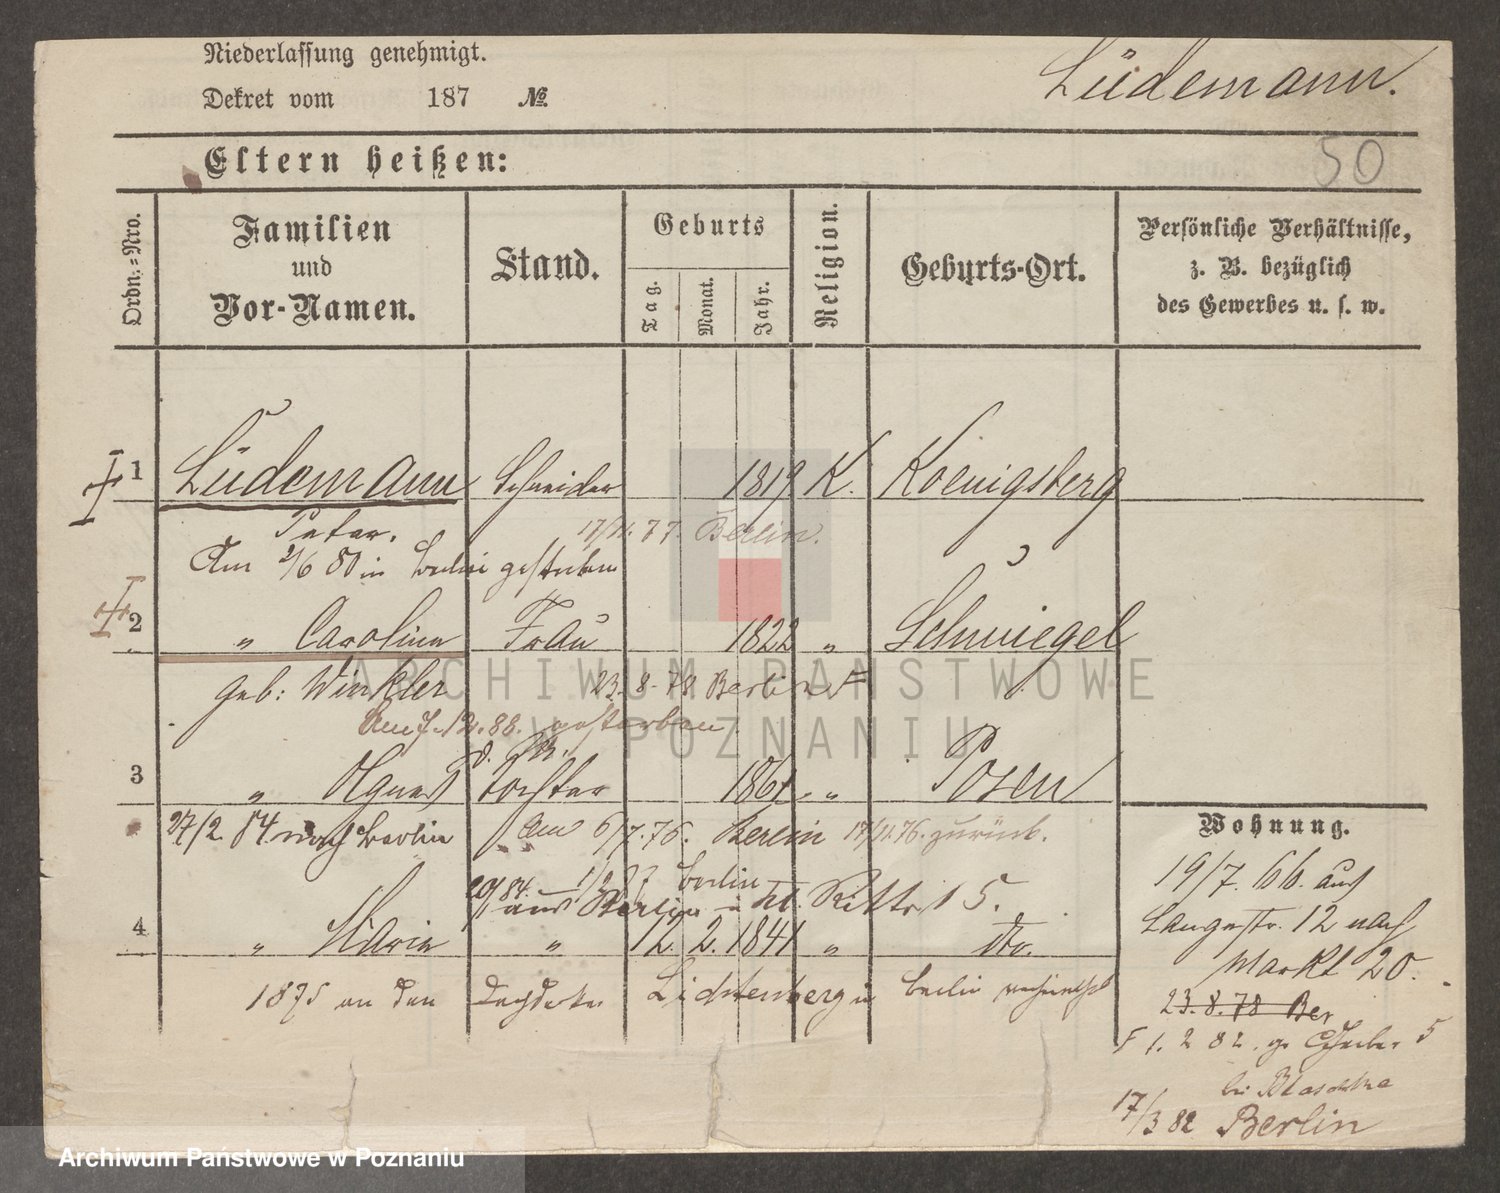 Niederlassung genehmigt.
Dekret vom 187 №
Lüdemann.
Eltern heißen:
50
Ordn.-Nro.
Familien
und
Vor-Namen.
Stand.
Geburts
Tag.
Monat.
Jahr.
Religion.
Geburts-Ort.
Persönliche Verhältnisse,
z. B. bezüglich
des Gewerbes u. s. w.
1 Lüdemann Schneider 1819 K. Koenigsberg
Peter. 17/11. 77. Berlin.
Am 2/6 80 in Berlin gestorben
2 " Carolina Frau 1822 " Schmiegel
geb: Winkler 23. 8. 78 Berlin F
Am 7. 12. 88. gestorben.
3 " Agnes Tochter 1861 " Posen
27/2. 84 nach Berlin Am 6/7. 76. Berlin 17/11. 76. zurück.
Berlin
20/ 84. aus Berlin kl. Rittr 15.
4 " Maria " 12. 2. 1841 " dto.
1875 an den Dachdecker Lichtenberg in Berlin verheirathet
Wohnung.
19/7. 66. aus
Langestr. 12 nach
Markt 20.
23. 8. 78 Ber
F 1. 2 82. 5
bei
17/3 82 Berlin
ARCHIWUM PAŃSTWOWE
W POZNANIU
Archiwum Państwowe w Poznaniu